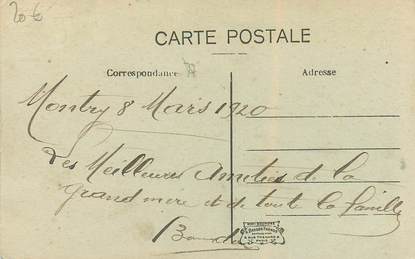 20 €
CARTE POSTALE
Correspondance
Adresse
Montry 8 Mars 1920
Les Meilleures Amitiés de la
grand mère et de toute la famille